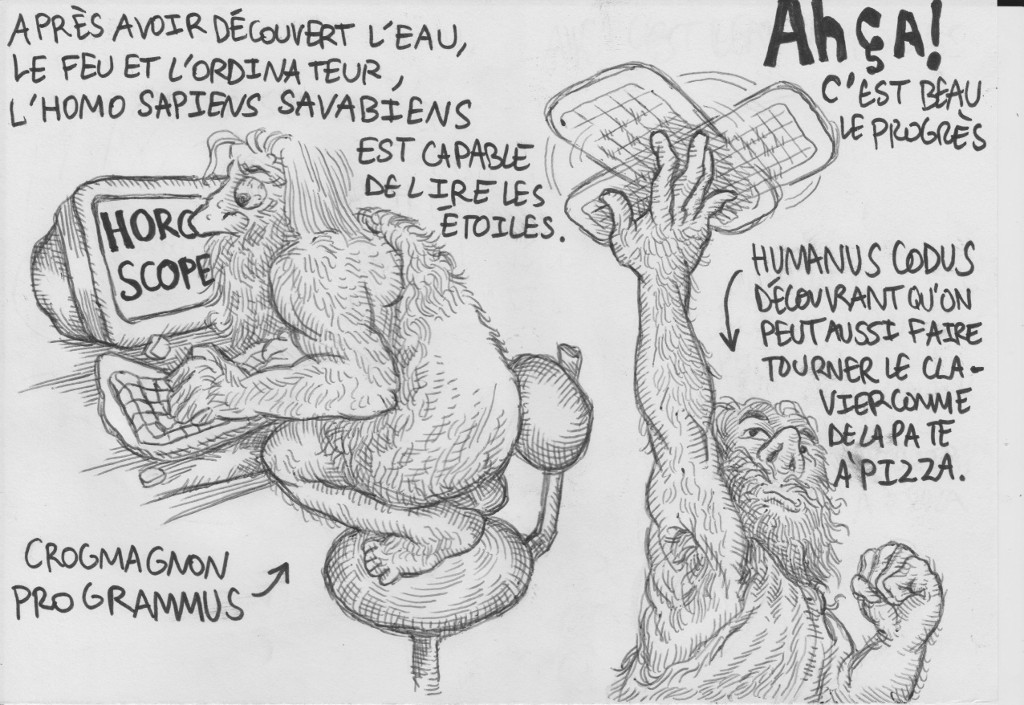 APRÈS AVOIR DÉCOUVERT L'EAU,
LE FEU ET L'ORDINATEUR,
L'HOMO SAPIENS SAVABIENS
EST CAPABLE
DE LIRE LES
ÉTOILES.
HORO
SCOPE
CROGMAGNON
PROGRAMMUS
AhçA!
C'EST BEAU
LE PROGRÈS
HUMANUS CODUS
DÉCOUVRANT QU'ON
PEUT AUSSI FAIRE
TOURNER LE CLA-
VIER COMME
DE LA PATE
A'PIZZA.